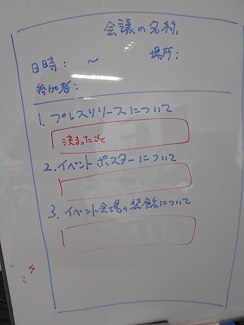 会議の名称
日時： ～ 場所：
参加者：
1. プレスリリースについて
決まったこと
2. イベントポスターについて
3. イベント会場の装飾について